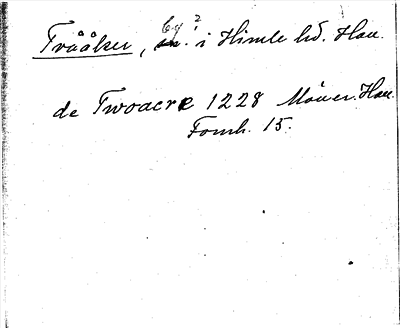 Tvååker, by? i Himle hd. Hall.
de Twoacre 1228 Möller. Hall.
Fornh. 15.